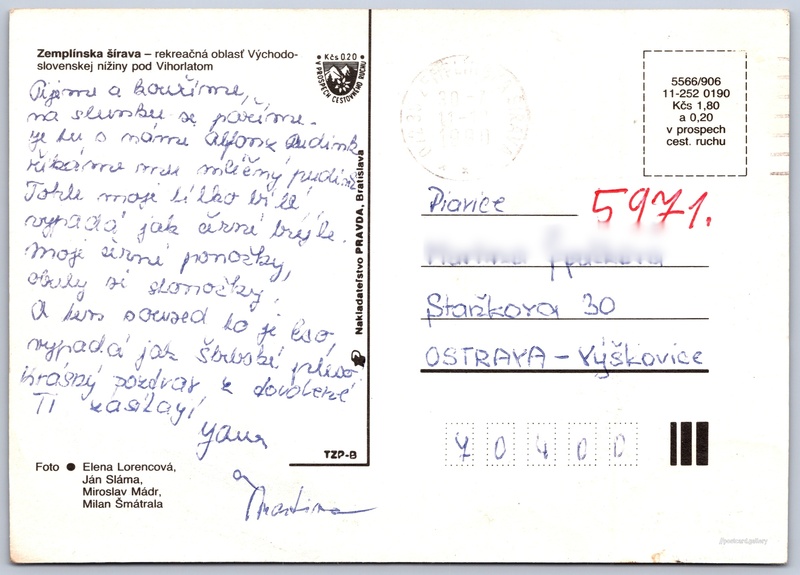 Zemplínska šírava – rekreačná oblasť Východo-
slovenskej nížiny pod Vihorlatom
Kčs 0.20
V PROSPECH CESTOVNÉHO RUCHU
Pijeme a kouříme,
na sluníčku se paříme.
Je tu s námi Alfons
říkáme mu mléčný
Tohle moje tílko bílé
vypadá jak černé brýle.
Moji černé ponožky,
obuly si
A kus soused to je eso,
vypadá jak pleso
Krásný pozdrav z dovolené
Ti zasílají
Jana
a
Martina
Nakladateľstvo PRAVDA, Bratislava
TZP-B
Foto ● Elena Lorencová,
Ján Sláma,
Miroslav Mádr,
Milan Šmátrala
5566/906
11-252 0190
Kčs 1,80
a 0,20
v prospech
cest. ruchu
5971.
Staržkova 30
OSTRAVA – Výškovice
70400